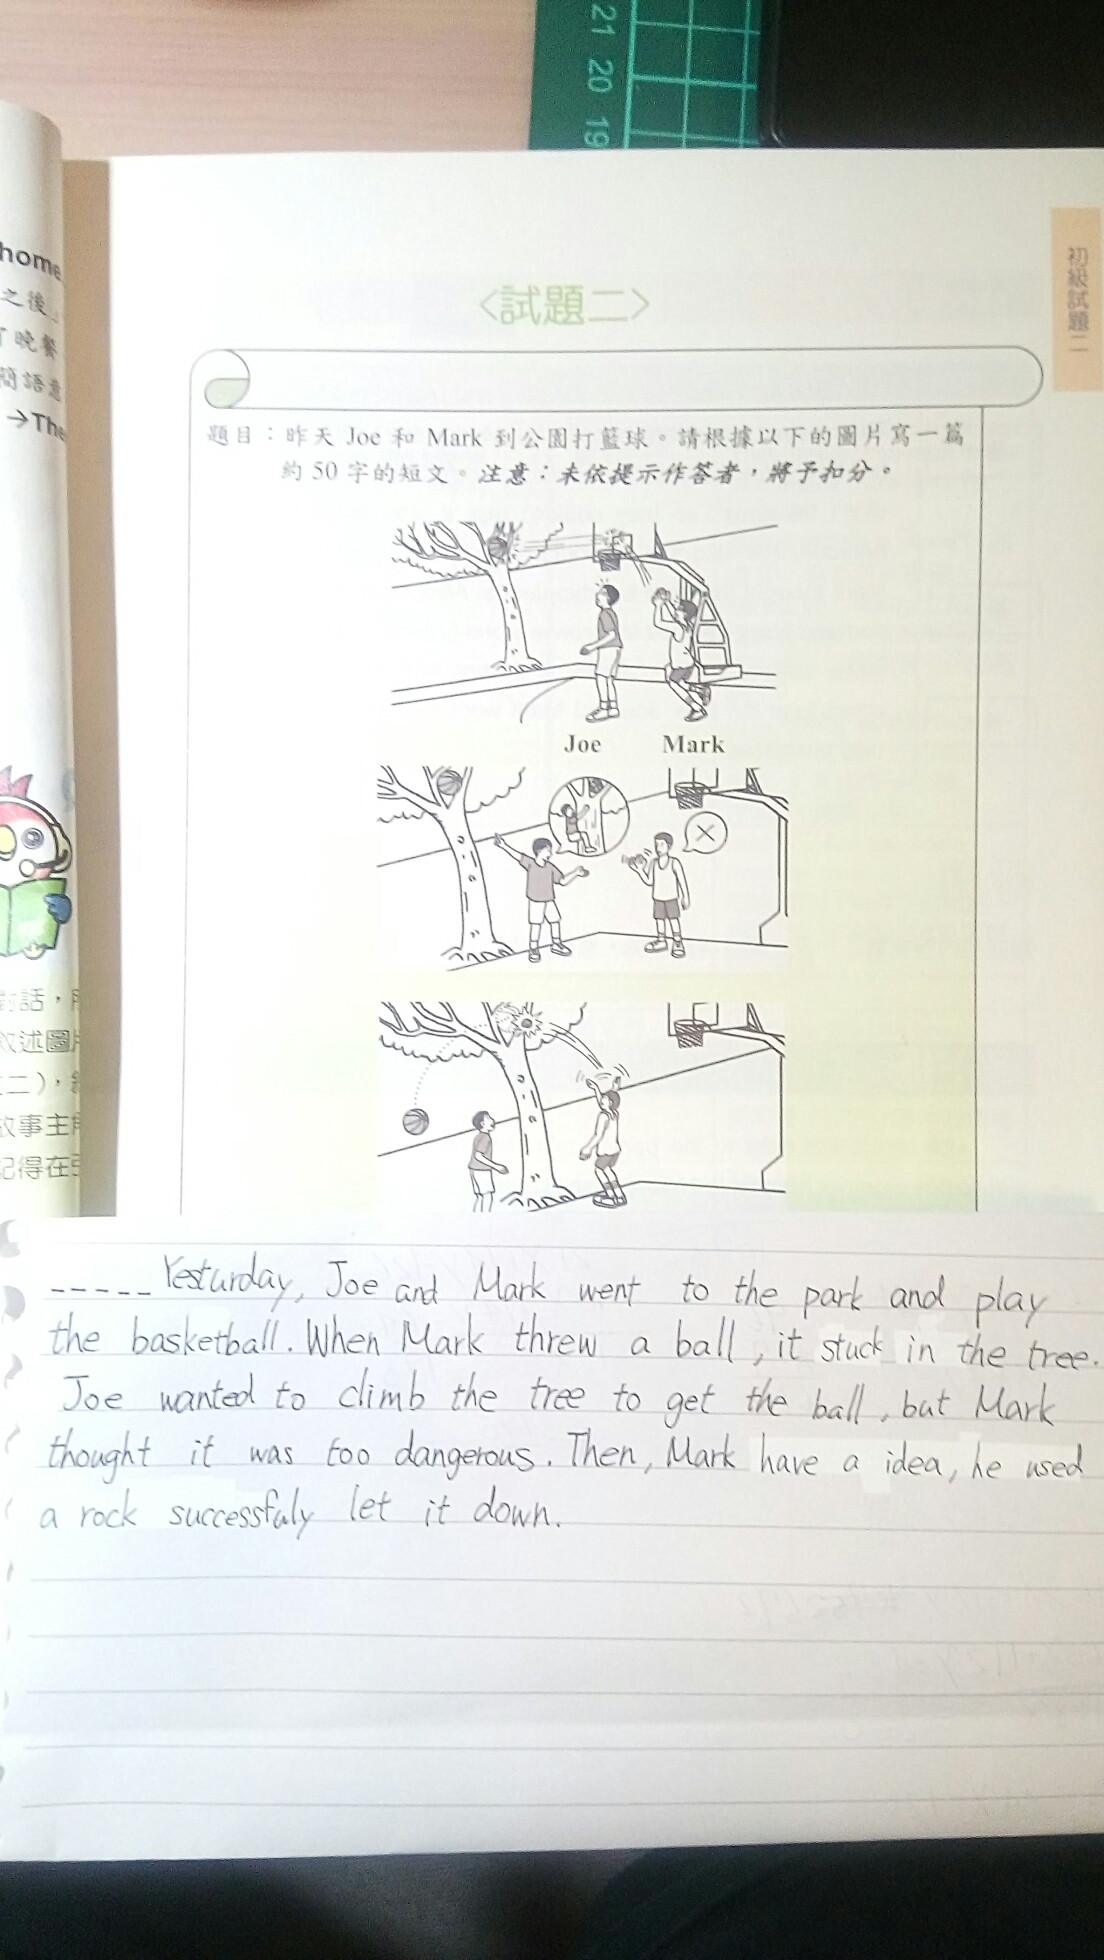 21 20 19
home
之後」
了晚餐
簡語意
→The
初級試題二
〈試題二〉
題目：昨天 Joe 和 Mark 到公園打籃球。請根據以下的圖片寫一篇
約 50 字的短文。注意：未依提示作答者，將予扣分。
Joe Mark
對話，
敘述圖片
二)，
故事主
記得在
-----Yesturday, Joe and Mark went to the park and play
the basketball. When Mark threw a ball, it stuck in the tree.
Joe wanted to climb the tree to get the ball, but Mark
thought it was too dangerous. Then, Mark have a idea, he used
a rock successfuly let it down.